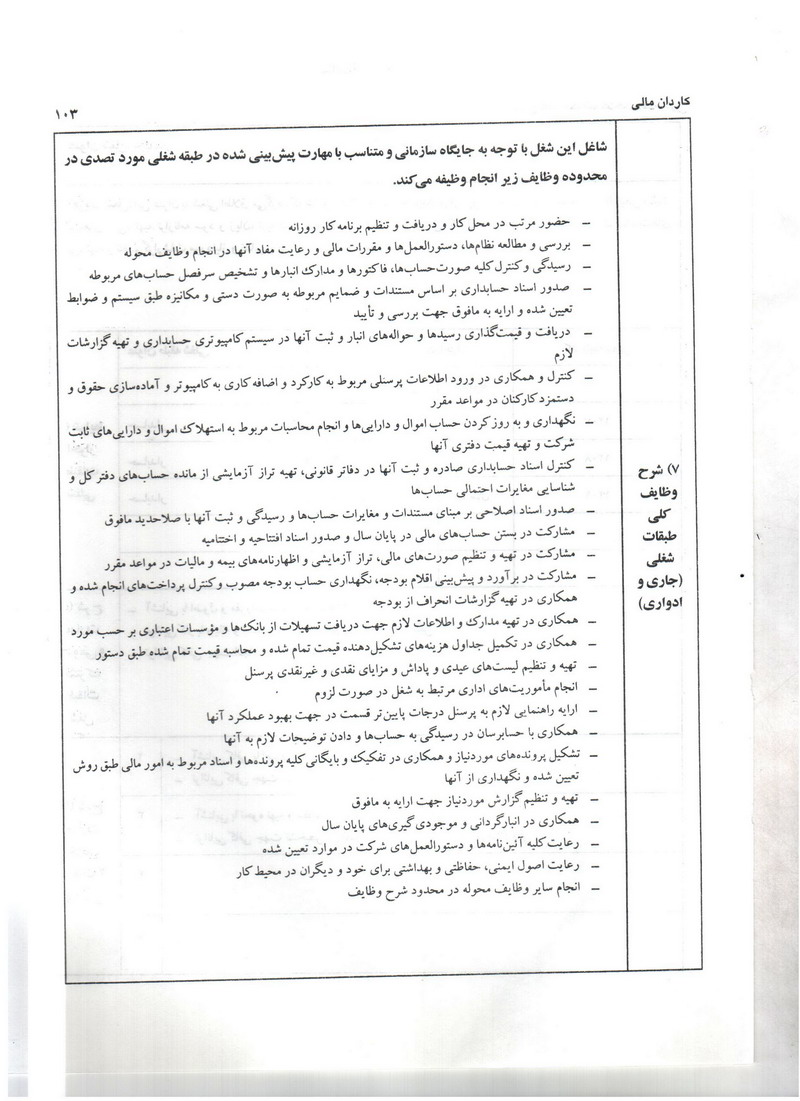 کاردان مالی
۱۰۳
شاغل این شغل با توجه به جایگاه سازمانی و متناسب با مهارت پیش‌بینی شده در طبقه شغلی مورد تصدی در
محدوده وظایف زیر انجام وظیفه می‌کند.
۷) شرح
وظایف
کلی
طبقات
شغلی
(جاری و
ادواری)
– حضور مرتب در محل کار و دریافت و تنظیم برنامه کار روزانه
– بررسی و مطالعه نظام‌ها، دستورالعمل‌ها و مقررات مالی و رعایت مفاد آنها در انجام وظایف محوله
– رسیدگی و کنترل کلیه صورت‌حساب‌ها، فاکتورها و مدارک انبارها و تشخیص سرفصل حساب‌های مربوطه
– صدور اسناد حسابداری بر اساس مستندات و ضمایم مربوطه به صورت دستی و مکانیزه طبق سیستم و ضوابط
تعیین شده و ارایه به مافوق جهت بررسی و تأیید
– دریافت و قیمت‌گذاری رسیدها و حواله‌های انبار و ثبت آنها در سیستم کامپیوتری حسابداری و تهیه گزارشات
لازم
– کنترل و همکاری در ورود اطلاعات پرسنلی مربوط به کارکرد و اضافه کاری به کامپیوتر و آماده‌سازی حقوق و
دستمزد کارکنان در مواعد مقرر
– نگهداری و به روز کردن حساب اموال و دارایی‌ها و انجام محاسبات مربوط به استهلاک اموال و دارایی‌های ثابت
شرکت و تهیه قیمت دفتری آنها
– کنترل اسناد حسابداری صادره و ثبت آنها در دفاتر قانونی، تهیه تراز آزمایشی از مانده حساب‌های دفتر کل و
شناسایی مغایرات احتمالی حساب‌ها
– صدور اسناد اصلاحی بر مبنای مستندات و مغایرات حساب‌ها و رسیدگی و ثبت آنها با صلاحدید مافوق
– مشارکت در بستن حساب‌های مالی در پایان سال و صدور اسناد افتتاحیه و اختتامیه
– مشارکت در تهیه و تنظیم صورت‌های مالی، تراز آزمایشی و اظهارنامه‌های بیمه و مالیات در مواعد مقرر
– مشارکت در برآورد و پیش‌بینی اقلام بودجه، نگهداری حساب بودجه مصوب و کنترل پرداخت‌های انجام شده و
همکاری در تهیه گزارشات انحراف از بودجه
– همکاری در تهیه مدارک و اطلاعات لازم جهت دریافت تسهیلات از بانک‌ها و مؤسسات اعتباری بر حسب مورد
– همکاری در تکمیل جداول هزینه‌های تشکیل‌دهنده قیمت تمام شده و محاسبه قیمت تمام شده طبق دستور
– تهیه و تنظیم لیست‌های عیدی و پاداش و مزایای نقدی و غیرنقدی پرسنل
– انجام مأموریت‌های اداری مرتبط به شغل در صورت لزوم
– ارایه راهنمایی لازم به پرسنل درجات پایین‌تر قسمت در جهت بهبود عملکرد آنها
– همکاری با حسابرسان در رسیدگی به حساب‌ها و دادن توضیحات لازم به آنها
– تشکیل پرونده‌های موردنیاز و همکاری در تفکیک و بایگانی کلیه پرونده‌ها و اسناد مربوط به امور مالی طبق روش
تعیین شده و نگهداری از آنها
– تهیه و تنظیم گزارش موردنیاز جهت ارایه به مافوق
– همکاری در انبارگردانی و موجودی گیری‌های پایان سال
– رعایت کلیه آئین‌نامه‌ها و دستورالعمل‌های شرکت در موارد تعیین شده
– رعایت اصول ایمنی، حفاظتی و بهداشتی برای خود و دیگران در محیط کار
– انجام سایر وظایف محوله در محدود شرح وظایف